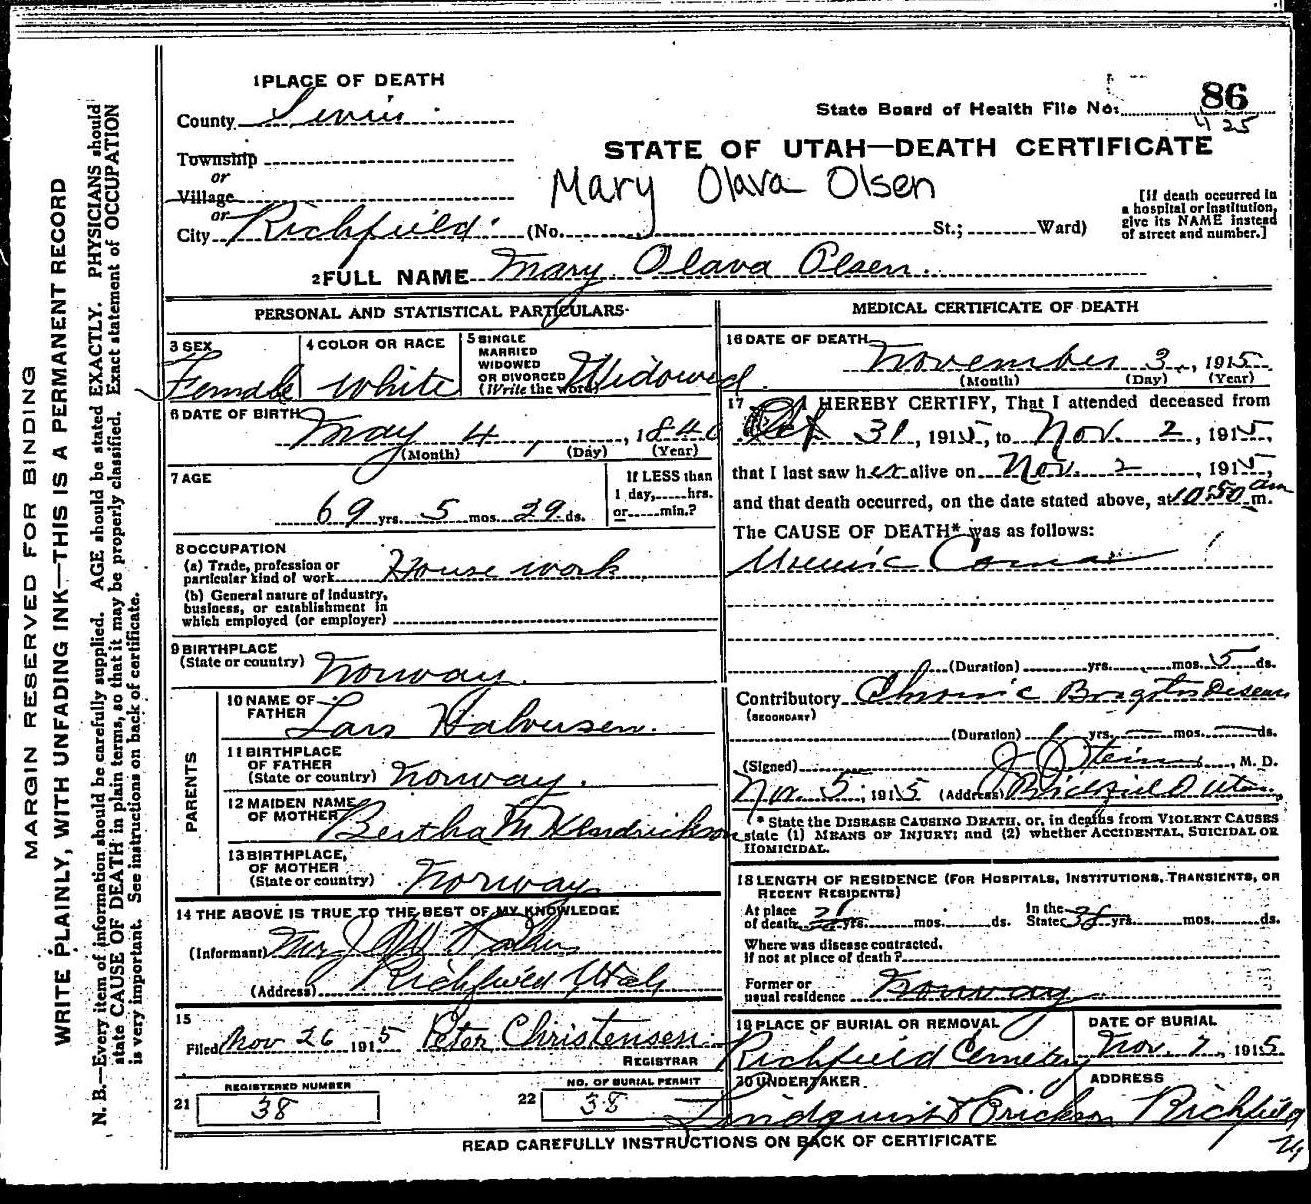 MARGIN RESERVED FOR BINDING
WRITE PLAINLY, WITH UNFADING INK—THIS IS A PERMANENT RECORD
N. B.—Every item of information should be carefully supplied. AGE should be stated EXACTLY. PHYSICIANS should
state CAUSE OF DEATH in plain terms, so that it may be properly classified. Exact statement of OCCUPATION
is very important. See instructions on back of certificate.
1 PLACE OF DEATH
County Sevier
Township
or
Village
or
City Richfield (No. St.; Ward)
State Board of Health File No. 86
425
STATE OF UTAH—DEATH CERTIFICATE
Mary Olava Olsen
[If death occurred in
a hospital or institution,
give its NAME instead
of street and number.]
2 FULL NAME Mary Olava Olsen
PERSONAL AND STATISTICAL PARTICULARS
3 SEX
Female
4 COLOR OR RACE
White
5 SINGLE
MARRIED
WIDOWED
OR DIVORCED
(Write the word)
Widowed
6 DATE OF BIRTH
May 4, 1840
(Month) (Day) (Year)
7 AGE
69 yrs. 5 mos. 29 ds.
If LESS than
1 day, hrs.
or min.?
8 OCCUPATION
(a) Trade, profession or
particular kind of work House work
(b) General nature of industry,
business, or establishment in
which employed (or employer)
9 BIRTHPLACE
(State or country) Norway
PARENTS
10 NAME OF
FATHER Lars Halversen
11 BIRTHPLACE
OF FATHER
(State or country) Norway.
12 MAIDEN NAME
OF MOTHER Bertha M Hendrickson
13 BIRTHPLACE,
OF MOTHER
(State or country) Norway
14 THE ABOVE IS TRUE TO THE BEST OF MY KNOWLEDGE
(Informant) Mrs
(Address) Richfield Utah
15
Filed Nov 26 1915 Peter Christensen
REGISTRAR
REGISTERED NUMBER
21 38
NO. OF BURIAL PERMIT
22 38
MEDICAL CERTIFICATE OF DEATH
16 DATE OF DEATH
November 3, 1915
(Month) (Day) (Year)
17 I HEREBY CERTIFY, That I attended deceased from
Oct 31, 1915, to Nov. 2, 1915,
that I last saw her alive on Nov. 2, 1915,
and that death occurred, on the date stated above, at 10:50 am m.
The CAUSE OF DEATH* was as follows:
Uremic Coma
(Duration) yrs. mos. 5 ds.
Contributory Chronic Brights Disease
(SECONDARY)
(Duration) 1 yrs. — mos. — ds.
(Signed) J. J. Steiner, M. D.
Nov. 5, 1915 (Address) Richfield Utah
* State the DISEASE CAUSING DEATH, or, in deaths from VIOLENT CAUSES
state (1) MEANS OF INJURY; and (2) whether ACCIDENTAL, SUICIDAL OR
HOMICIDAL.
18 LENGTH OF RESIDENCE (FOR HOSPITALS, INSTITUTIONS, TRANSIENTS, OR
RECENT RESIDENTS)
At place
of death yrs. mos. ds.
In the
State 38 yrs. mos. ds.
Where was disease contracted.
If not at place of death?
Former or
usual residence Norway
19 PLACE OF BURIAL OR REMOVAL
Richfield Cemetery
DATE OF BURIAL
Nov. 7, 1915.
20 UNDERTAKER
Lindquist & Erickson
ADDRESS
Richfield
READ CAREFULLY INSTRUCTIONS ON BACK OF CERTIFICATE